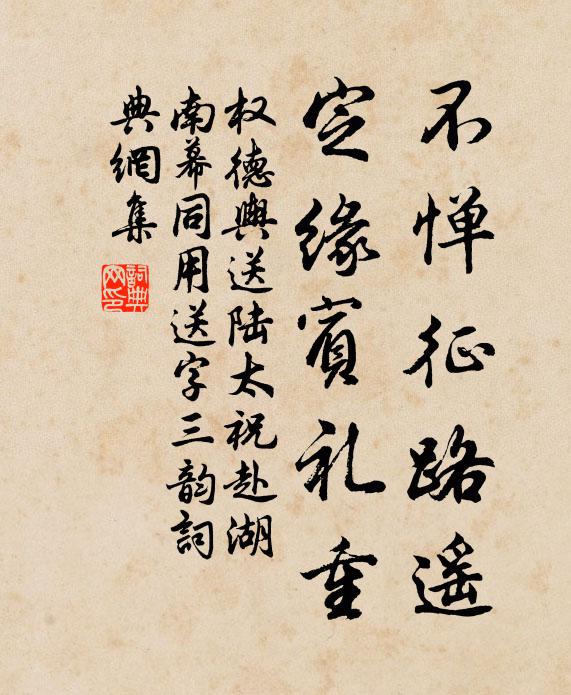 不惮征路遥
定缘宾礼重
权德舆送陆太祝赴湖
南幕同用送字三韵詞
典網集
詞典網印